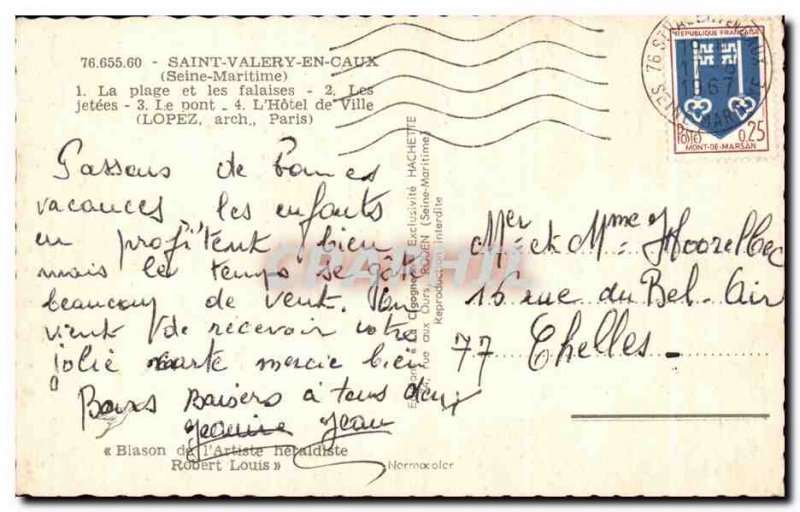 76.655.60 - SAINT-VALERY-EN-CAUX
(Seine-Maritime)
1. La plage et les falaises - 2. Les
jetées - 3. Le pont - 4. L'Hôtel de Ville
(LOPEZ, arch., Paris)
Passons de bonnes
vacances les enfants
en profitent bien
mais le temps se gâte
beaucoup de vent. On
vient de recevoir votre
jolie carte mercie bien
Bons Baisers à tous deux
Jeanine Jean
« Blason de l'Artiste héraldiste
Robert Louis »
Normacolor
Editions « La Cigogne » Exclusivité HACHETTE
rue aux Ours, ROUEN (Seine-Maritime)
Reproduction interdite
76 ST VALERY EN CAUX
1967
SEINE MARITIME
REPUBLIQUE FRANÇAISE
Postes
0,25
MONT-DE-MARSAN
Mer et Mme
16 rue du Bel-Air
77 Chelles